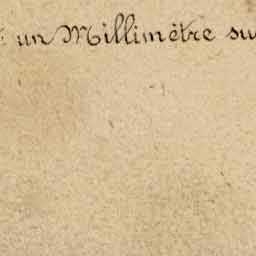 un Millimètre su